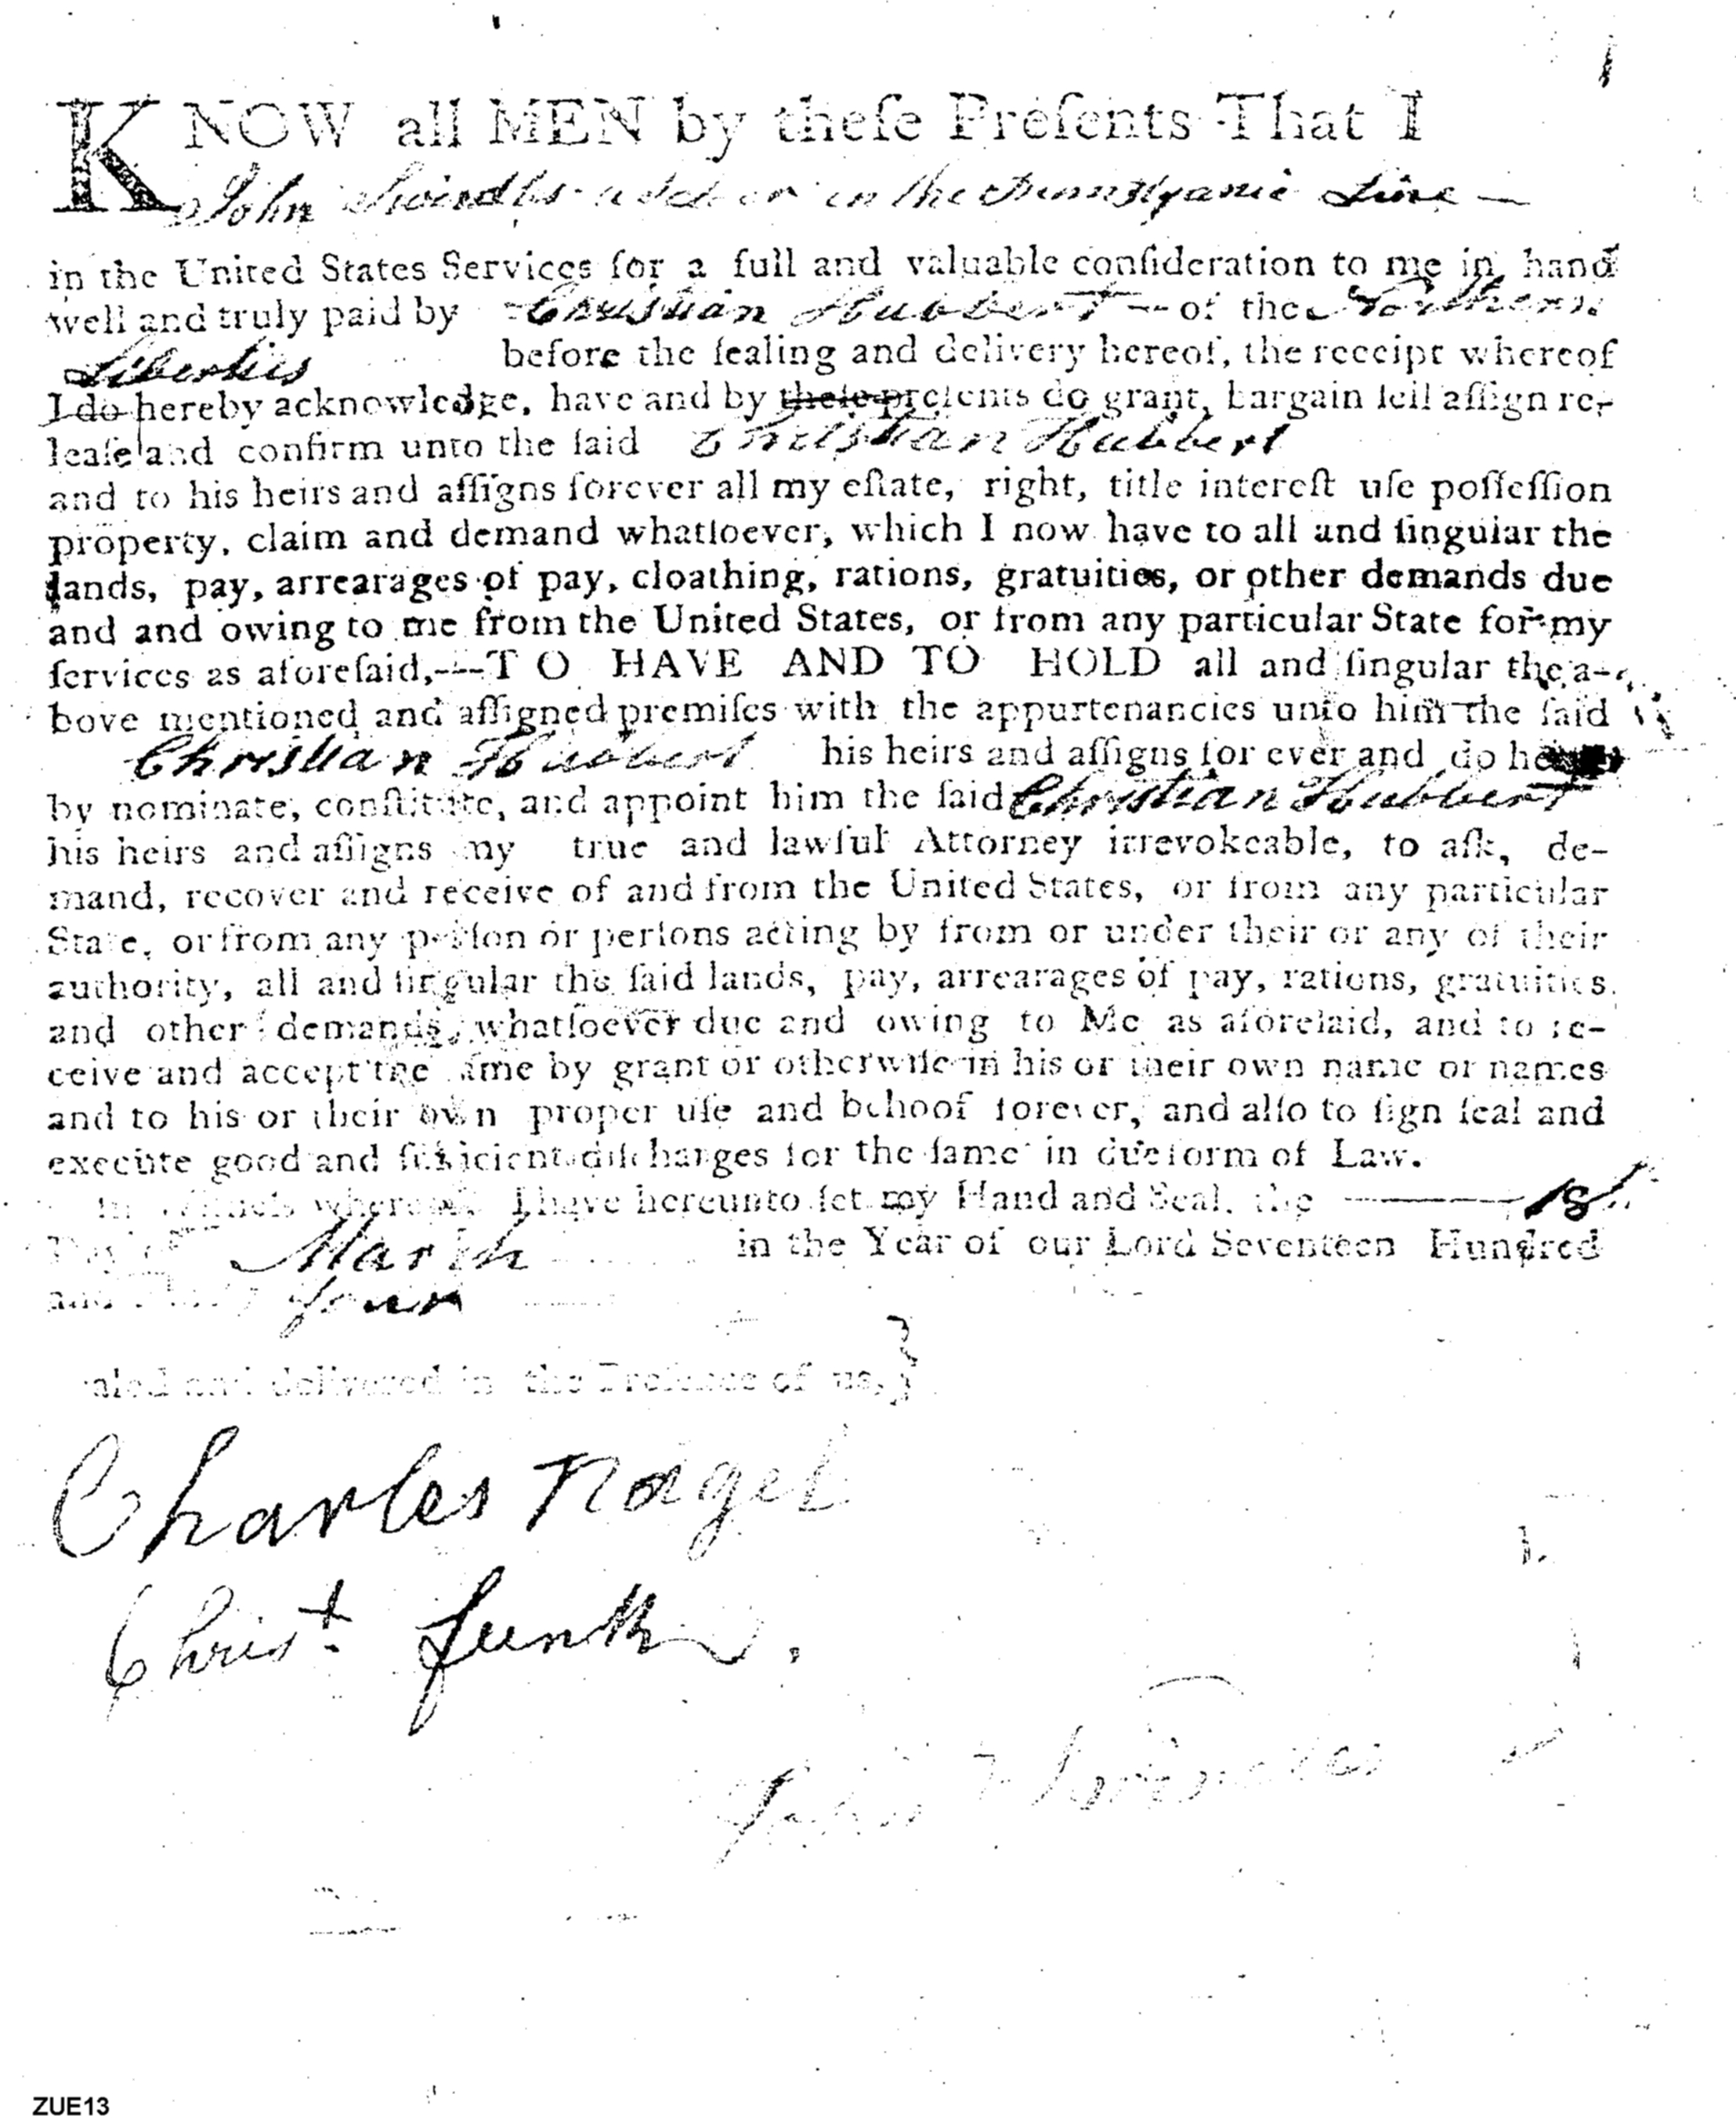 KNOW all MEN by theſe Preſents That I
John in the Line —
in the United States Services for a full and valuable conſideration to me in hand
well and truly paid by Christian Hubbert — of the Northern
Liberties before the ſealing and delivery hereof, the receipt whereof
I do hereby acknowledge, have and by theſe preſents do grant, bargain ſell aſſign re-
leaſe and confirm unto the ſaid Christian Hubbert
and to his heirs and aſſigns forever all my eſtate, right, title intereſt uſe poſſeſſion
property, claim and demand whatſoever, which I now have to all and ſingular the
lands, pay, arrearages of pay, cloathing, rations, gratuities, or other demands due
and and owing to me from the United States, or from any particular State for my
ſervices as aforeſaid,---TO HAVE AND TO HOLD all and ſingular the a-
bove mentioned and aſſigned premiſes with the appurtenancies unto him the ſaid
Christian Hubbert his heirs and aſſigns for ever and do he
by nominate, conſtitute, and appoint him the ſaid Christian Hubbert
his heirs and aſſigns my true and lawful Attorney irrevokeable, to aſk, de-
mand, recover and receive of and from the United States, or from any particular
State, or from any perſon or perſons acting by from or under their or any of their
authority, all and ſingular the ſaid lands, pay, arrearages of pay, rations, gratuities
and other demands, whatſoever due and owing to Me as aforeſaid, and to re-
ceive and accept the ſame by grant or otherwiſe in his or their own name or names
and to his or their own proper uſe and behoof forever, and alſo to ſign ſeal and
execute good and ſufficient diſcharges for the ſame in due form of Law.
In Witneſs whereof I have hereunto ſet my Hand and Seal, the — 18
Day of March in the Year of our Lord Seventeen Hundred
and four
ſealed and delivered in the Preſence of us,}
Charles Nagel
Christ. Funk
John
ZUE13